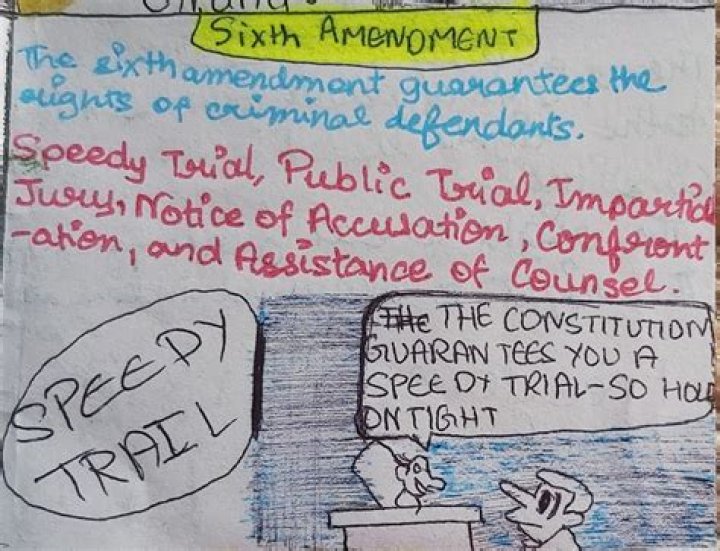 Sixth AMENDMENT
The sixth amendment guarantees the
rights of criminal defendants.
Speedy Trial, Public Trial, Impartial
Jury, Notice of Accusation, Confront
-ation, and Assistance of Counsel.
SPEEDY
TRAIL
THE THE CONSTITUTION
GUARANTEES YOU A
SPEEDY TRIAL-SO HOLD
ON TIGHT